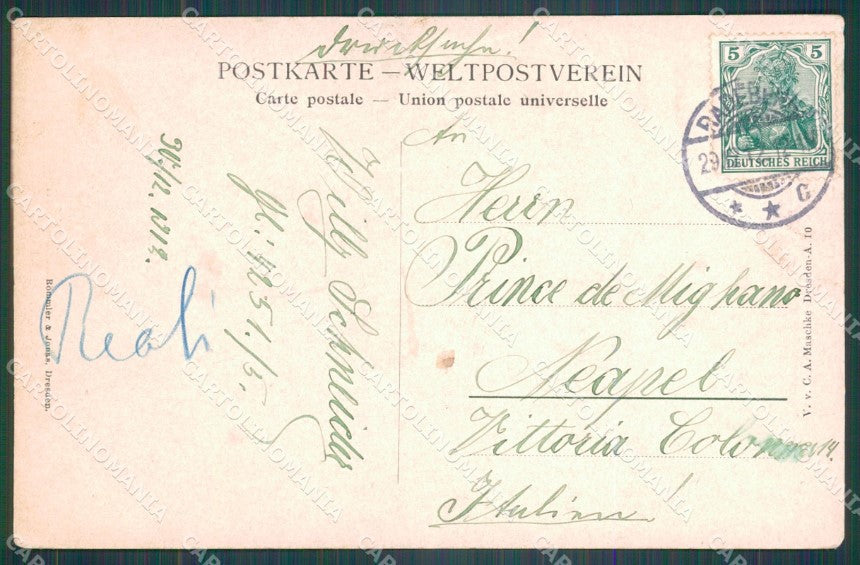 Drucksache!
POSTKARTE — WELTPOSTVEREIN
Carte postale — Union postale universelle
5 5
DEUTSCHES REICH
29
C
An
Herrn
Prince de Mighano
Neapel
Vittoria Colonna 14.
Italien!
Willy Schneider
Reali
Römmler & Jonas, Dresden.
V. v. C. A. Maschke Dresden-A. 10
CARTOLINOMANIA